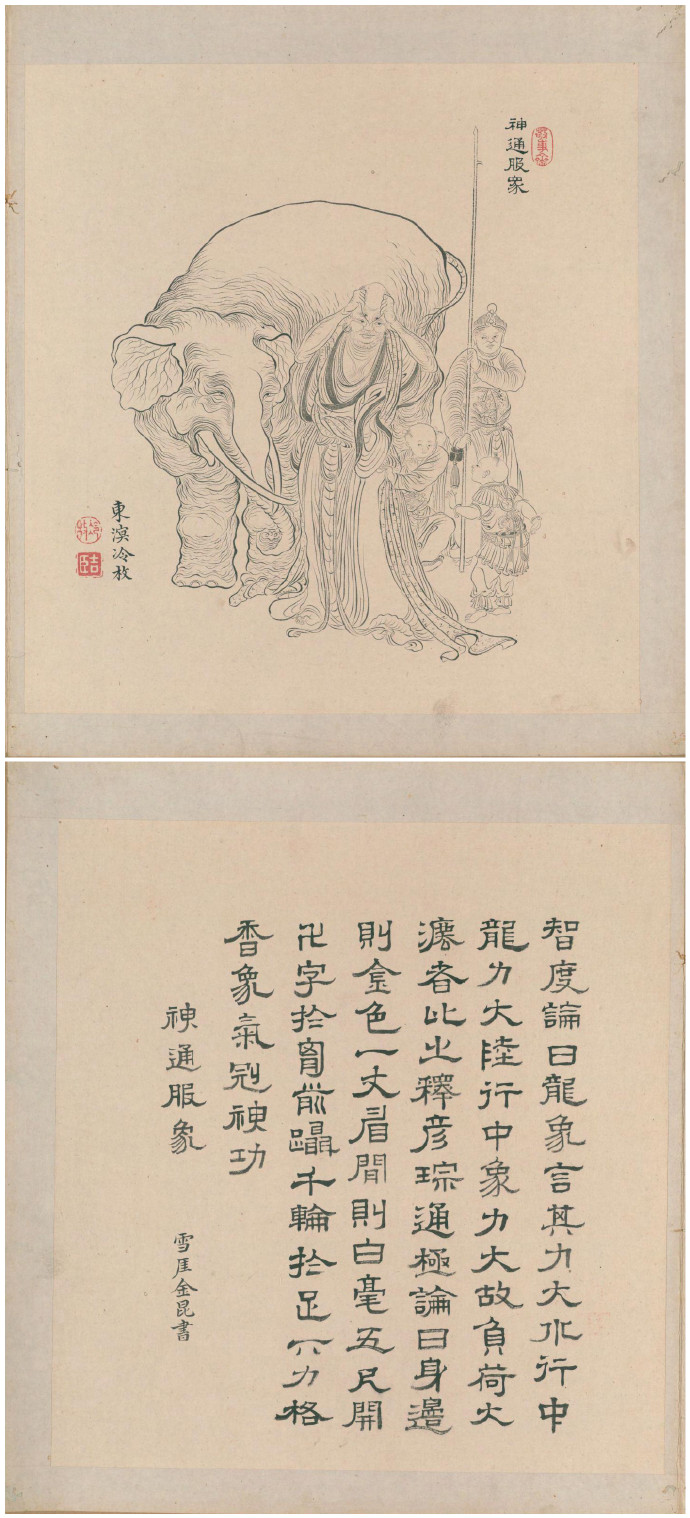 神通服象
東溟冷枚
冷枚
吉臣
智度論曰龍象言其力大水行中
龍力大陸行中象力大故負荷大
灋者比之釋彥琮通極論曰身邊
則金色一丈眉間則白毫五尺開
卍字於胷前躡千輪於足下力格
香象氣剋神功
神通服象
雪厓金昆書